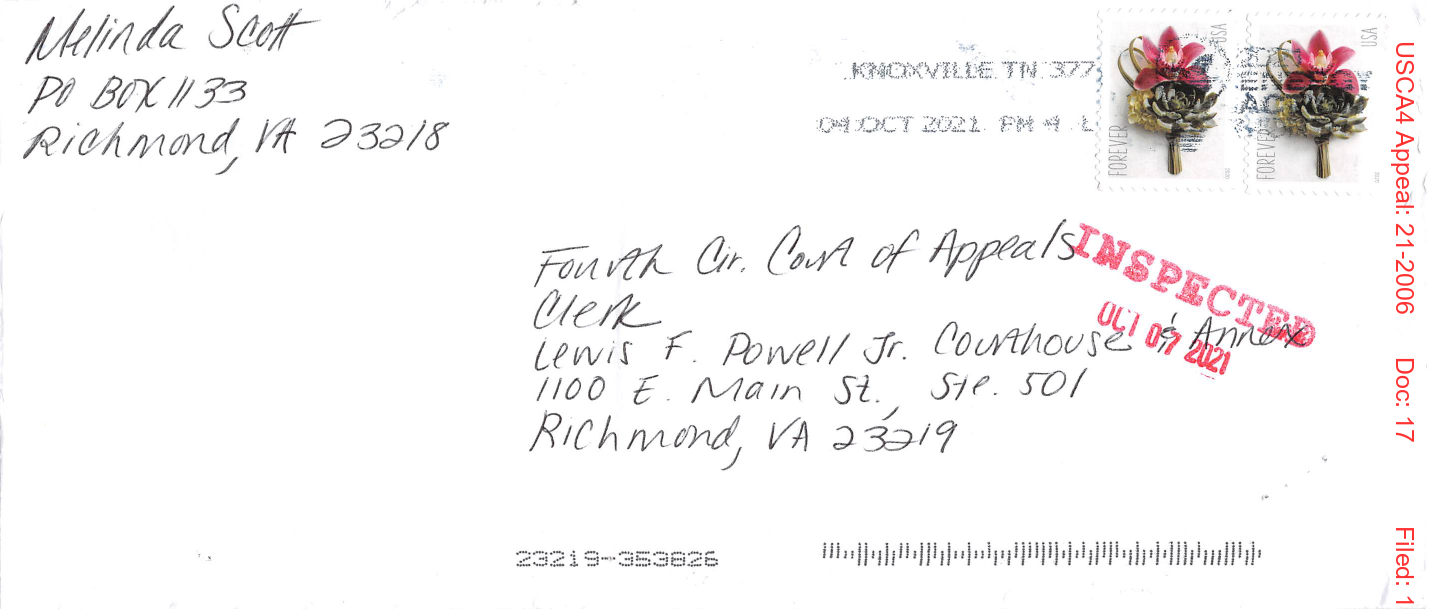 Melinda Scott
PO BOX 1133
Richmond, VA 23218
KNOXVILLE TN 377
04 OCT 2021 PM 4 L
FOREVER
USA
FOREVER
USA
Fourth Cir. Court of Appeals
Clerk
Lewis F. Powell Jr. Courthouse & Annex
1100 E. Main St., Ste. 501
Richmond, VA 23219
INSPECTED
OCT 07 2021
23219-353826
USCA4 Appeal: 21-2006 Doc: 17 Filed: 1